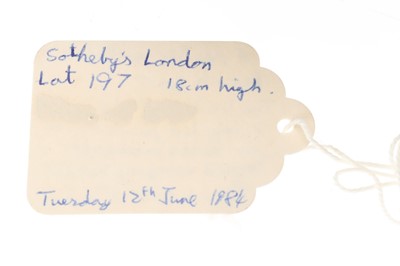 Sotheby's London
Lot 197 18cm high.
Tuesday 12th June 1984